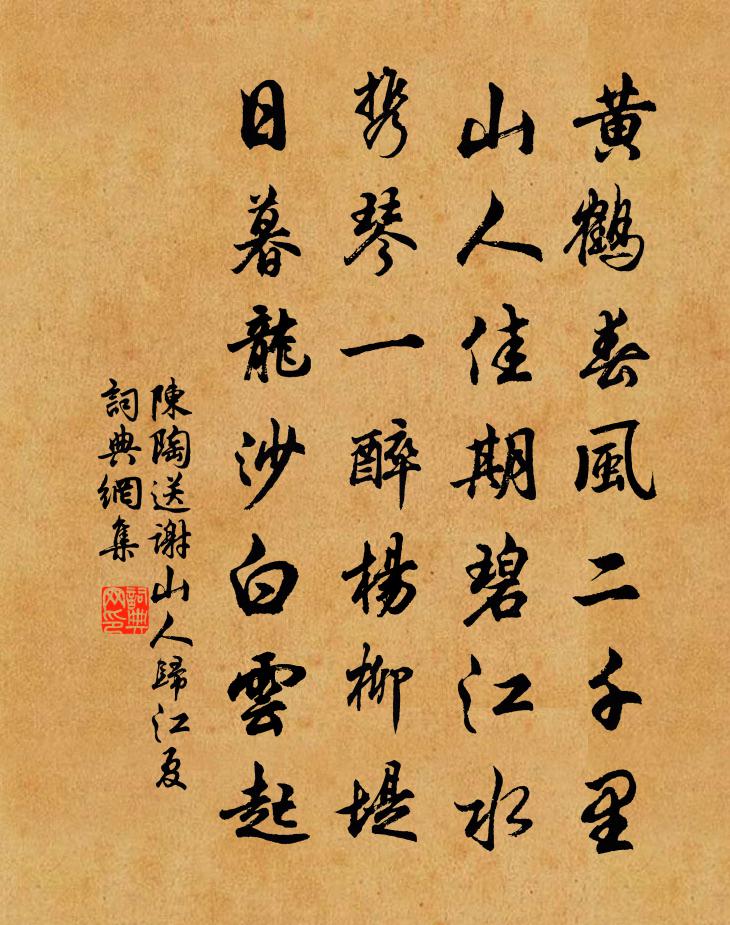 黃鶴春風二千里
山人佳期碧江水
携琴一醉楊柳堤
日暮龍沙白雲起
陳陶送謝山人歸江夏
詞典網集
詞典网印